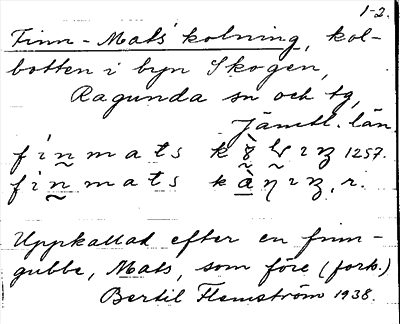 1-2.
Finn-Mats' kolning, kol-
botten i byn Skogen,
Ragunda sn och tg,
Jämtl. län.
1257.
r.
Uppkallad efter en finn-
gubbe, Mats, som före (forts.)
Bertil Flemström 1938.